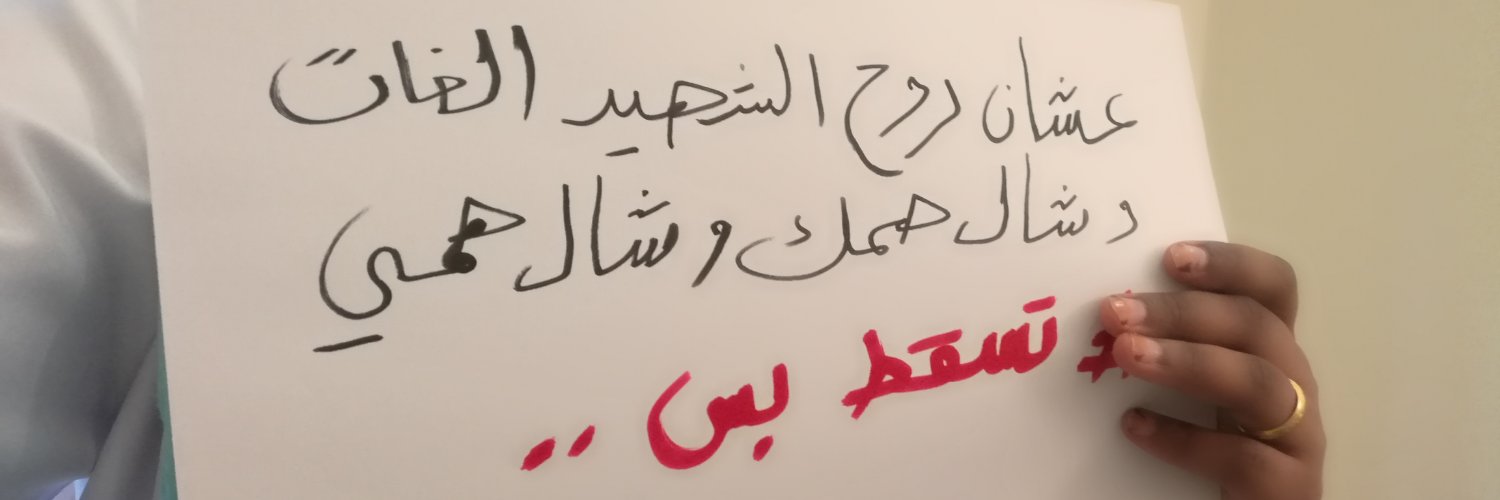 عشان روح الشهيد الفات
وشال همك وشال همي
#تسقط بس ..